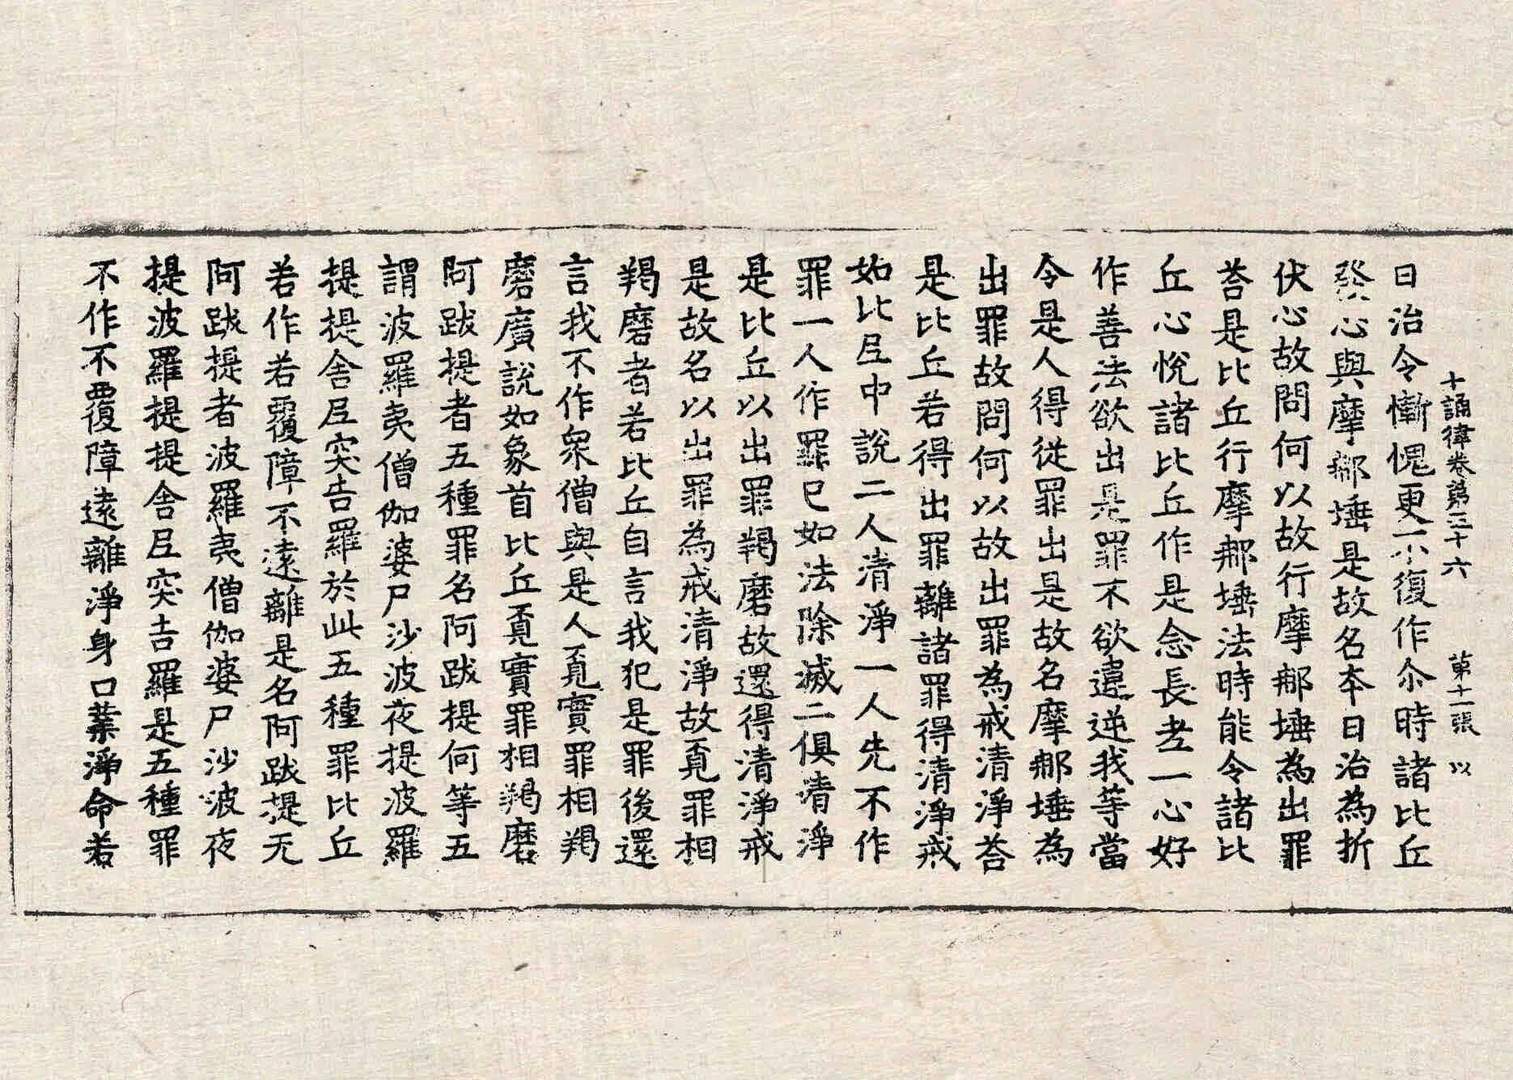 十誦律卷第三十六 第十一張 以
日治令慚愧更不復作尒時諸比丘
發心與摩那埵是故名本日治為折
伏心故問何以故行摩那埵為出罪
荅是比丘行摩那埵法時能令諸比
丘心悅諸比丘作是念長老一心好
作善法欲出是罪不欲違逆我等當
令是人得從罪出是故名摩那埵為
出罪故問何以故出罪為戒清淨荅
是比丘若得出罪離諸罪得清淨戒
如比尼中說二人清淨一人先不作
罪一人作罪已如法除滅二俱清淨
是比丘以出罪羯磨故還得清淨戒
是故名以出罪為戒清淨故覓罪相
羯磨者若比丘自言我犯是罪後還
言我不作衆僧與是人覓實罪相羯
磨廣說如象首比丘覓實罪相羯磨
阿跋提者五種罪名阿跋提何等五
謂波羅夷僧伽婆尸沙波夜提波羅
提提舍尼突吉羅於此五種罪比丘
若作若覆障不遠離是名阿跋提无
阿跋提者波羅夷僧伽婆尸沙波夜
提波羅提提舍尼突吉羅是五種罪
不作不覆障遠離淨身口業淨命若